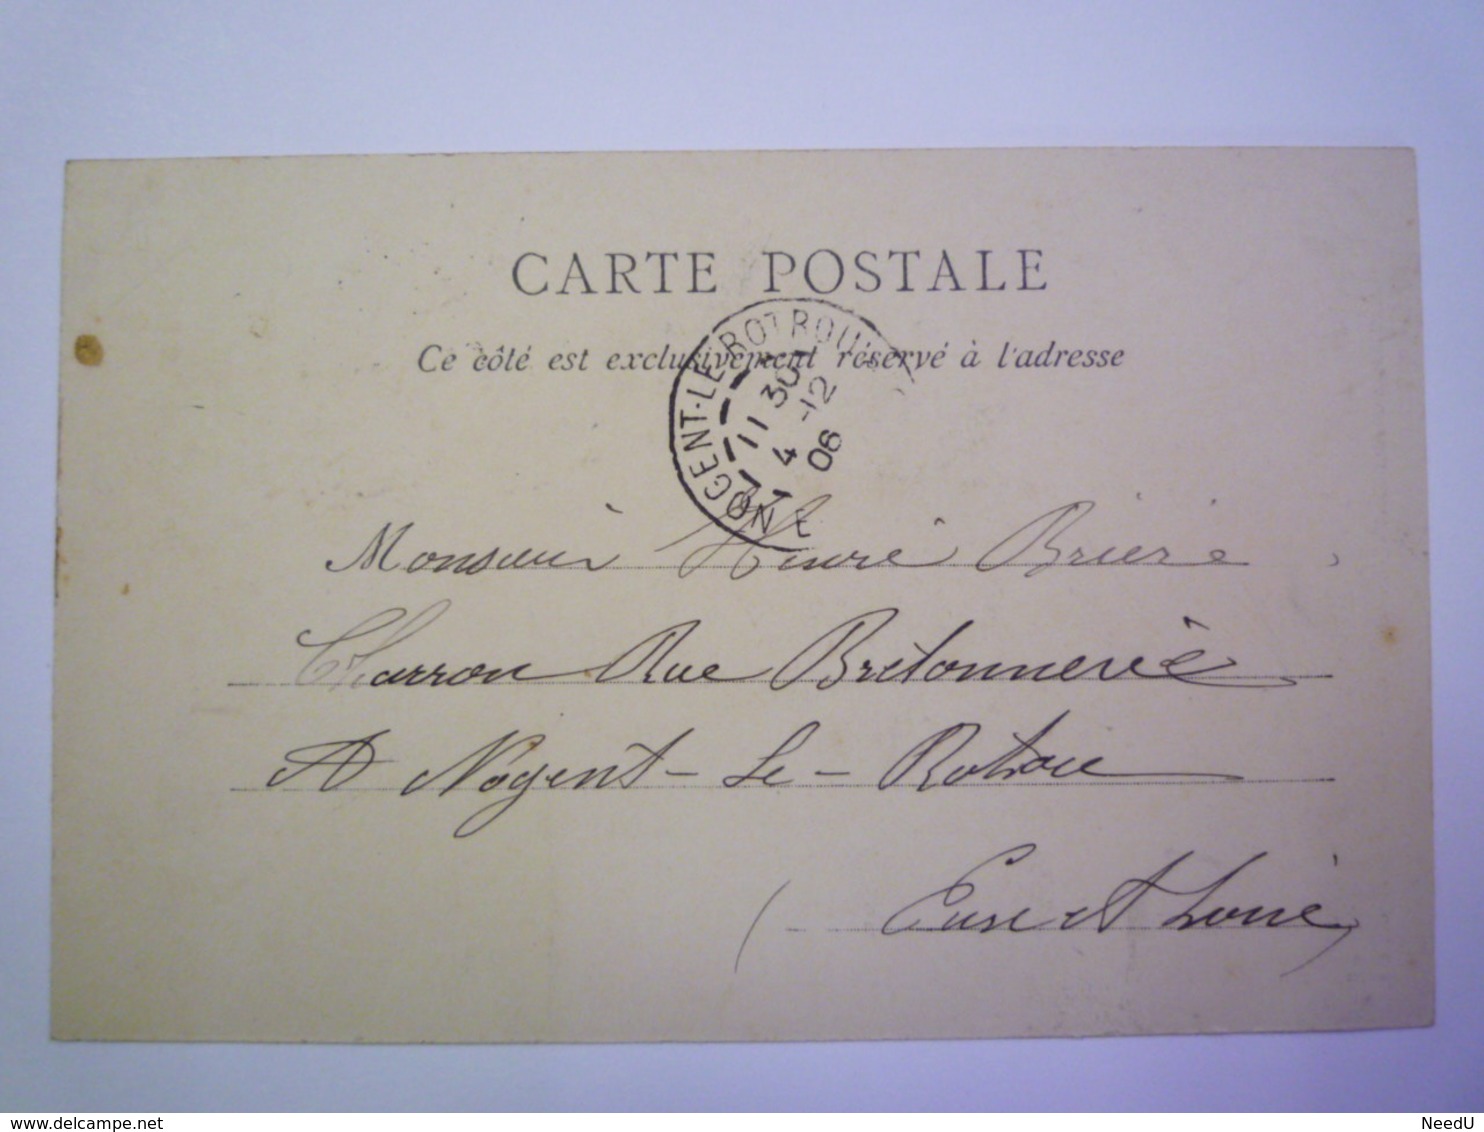 CARTE POSTALE
Ce côté est exclusivement réservé à l'adresse
NOGENT-LE-ROTROU
11 30
4 -12
06
Monsieur Henri Brière
Charron Rue Bretonnerie
A Nogent-Le-Rotrou
(Eure et Loire)
www.delcampe.net
NeedU